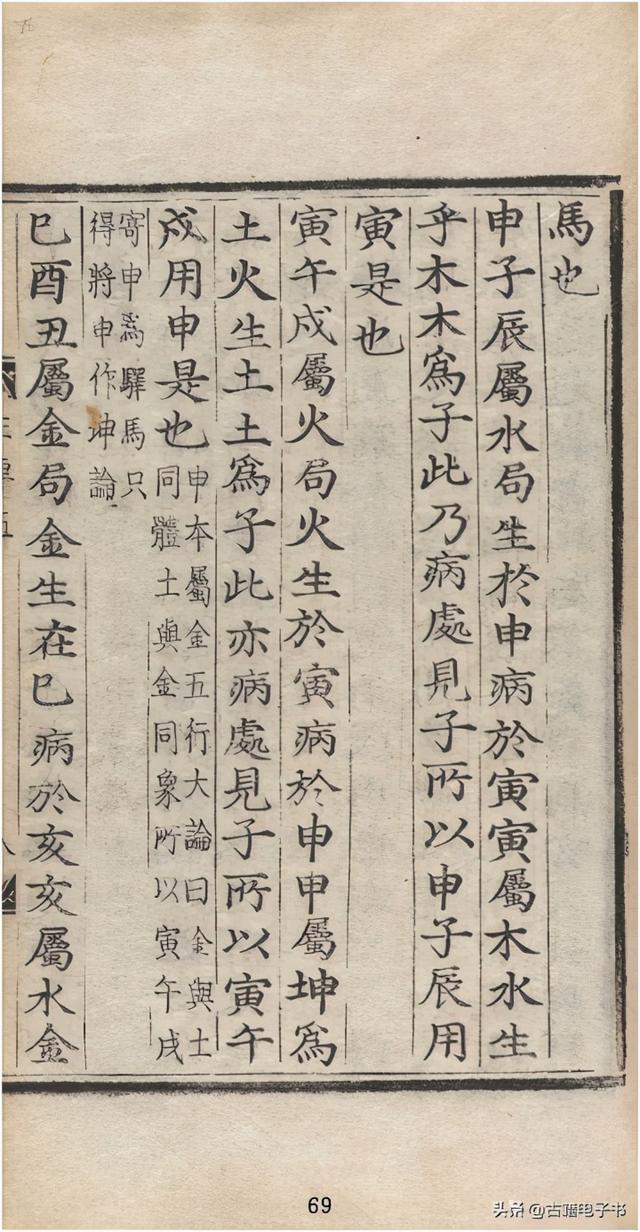 馬也
申子辰屬水局生於申病於寅寅屬木水生
乎木木爲子此乃病處見子所以申子辰用
寅是也
寅午戍屬火局火生於寅病於申申屬坤爲
土火生土土爲子此亦病處見子所以寅午
戍用申是也
申本屬金五行大論曰金與土
同體土與金同象所以寅午戌
寄申爲驛馬只
得將申作坤論
巳酉丑屬金局金生在巳病於亥亥屬水金
69
头条@古籍电子书